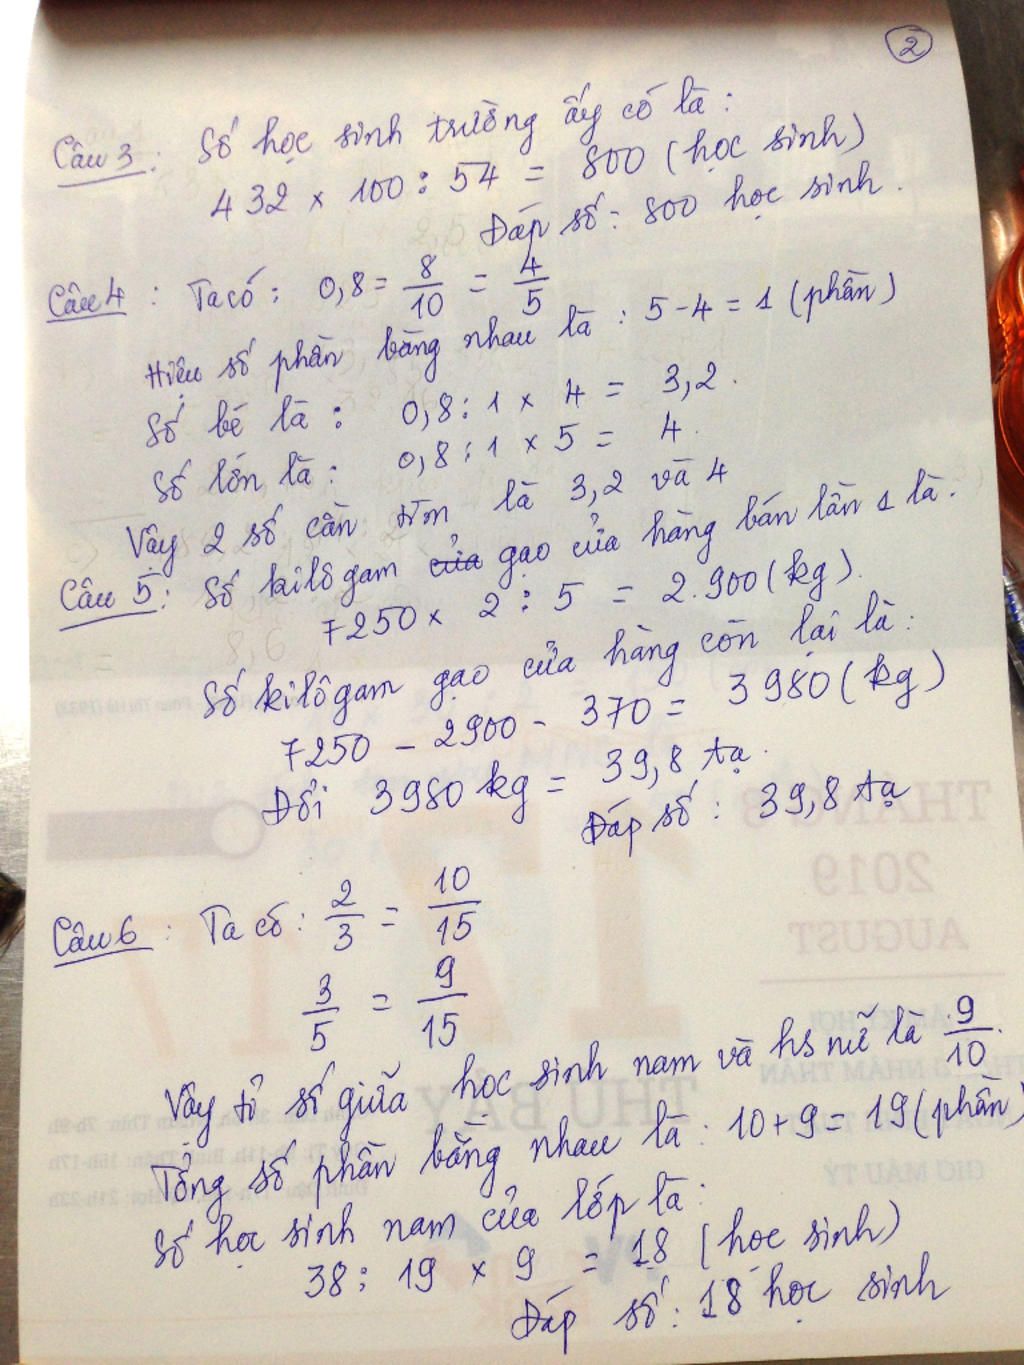 2
Câu 3: Số học sinh trường ấy có là:
432 x 100 : 54 = 800 (học sinh)
Đáp số: 800 học sinh.
Câu 4: Ta có: 0,8 = 8/10 = 4/5
Hiệu số phần bằng nhau là: 5-4 = 1 (phần)
Số bé là: 0,8 : 1 x 4 = 3,2.
Số lớn là: 0,8 : 1 x 5 = 4.
Vậy 2 số cần tìm là 3,2 và 4
Câu 5: Số kilôgam của gạo cửa hàng bán lần 1 là.
7250 x 2 : 5 = 2.900 (kg).
Số kilôgam gạo cửa hàng còn lại là:
7250 - 2900 - 370 = 3980 (kg)
Đổi 3980 kg = 39,8 tạ.
Đáp số: 39,8 tạ
Câu 6: Ta có: 2/3 = 10/15
3/5 = 9/15
Vậy tỉ số giữa học sinh nam và hs nữ là 9/10.
Tổng số phần bằng nhau là: 10+9 = 19 (phần)
Số học sinh nam của lớp là:
38 : 19 x 9 = 18 (học sinh)
Đáp số: 18 học sinh
THÁNG 8
2019
AUGUST
17
THỨ BẢY